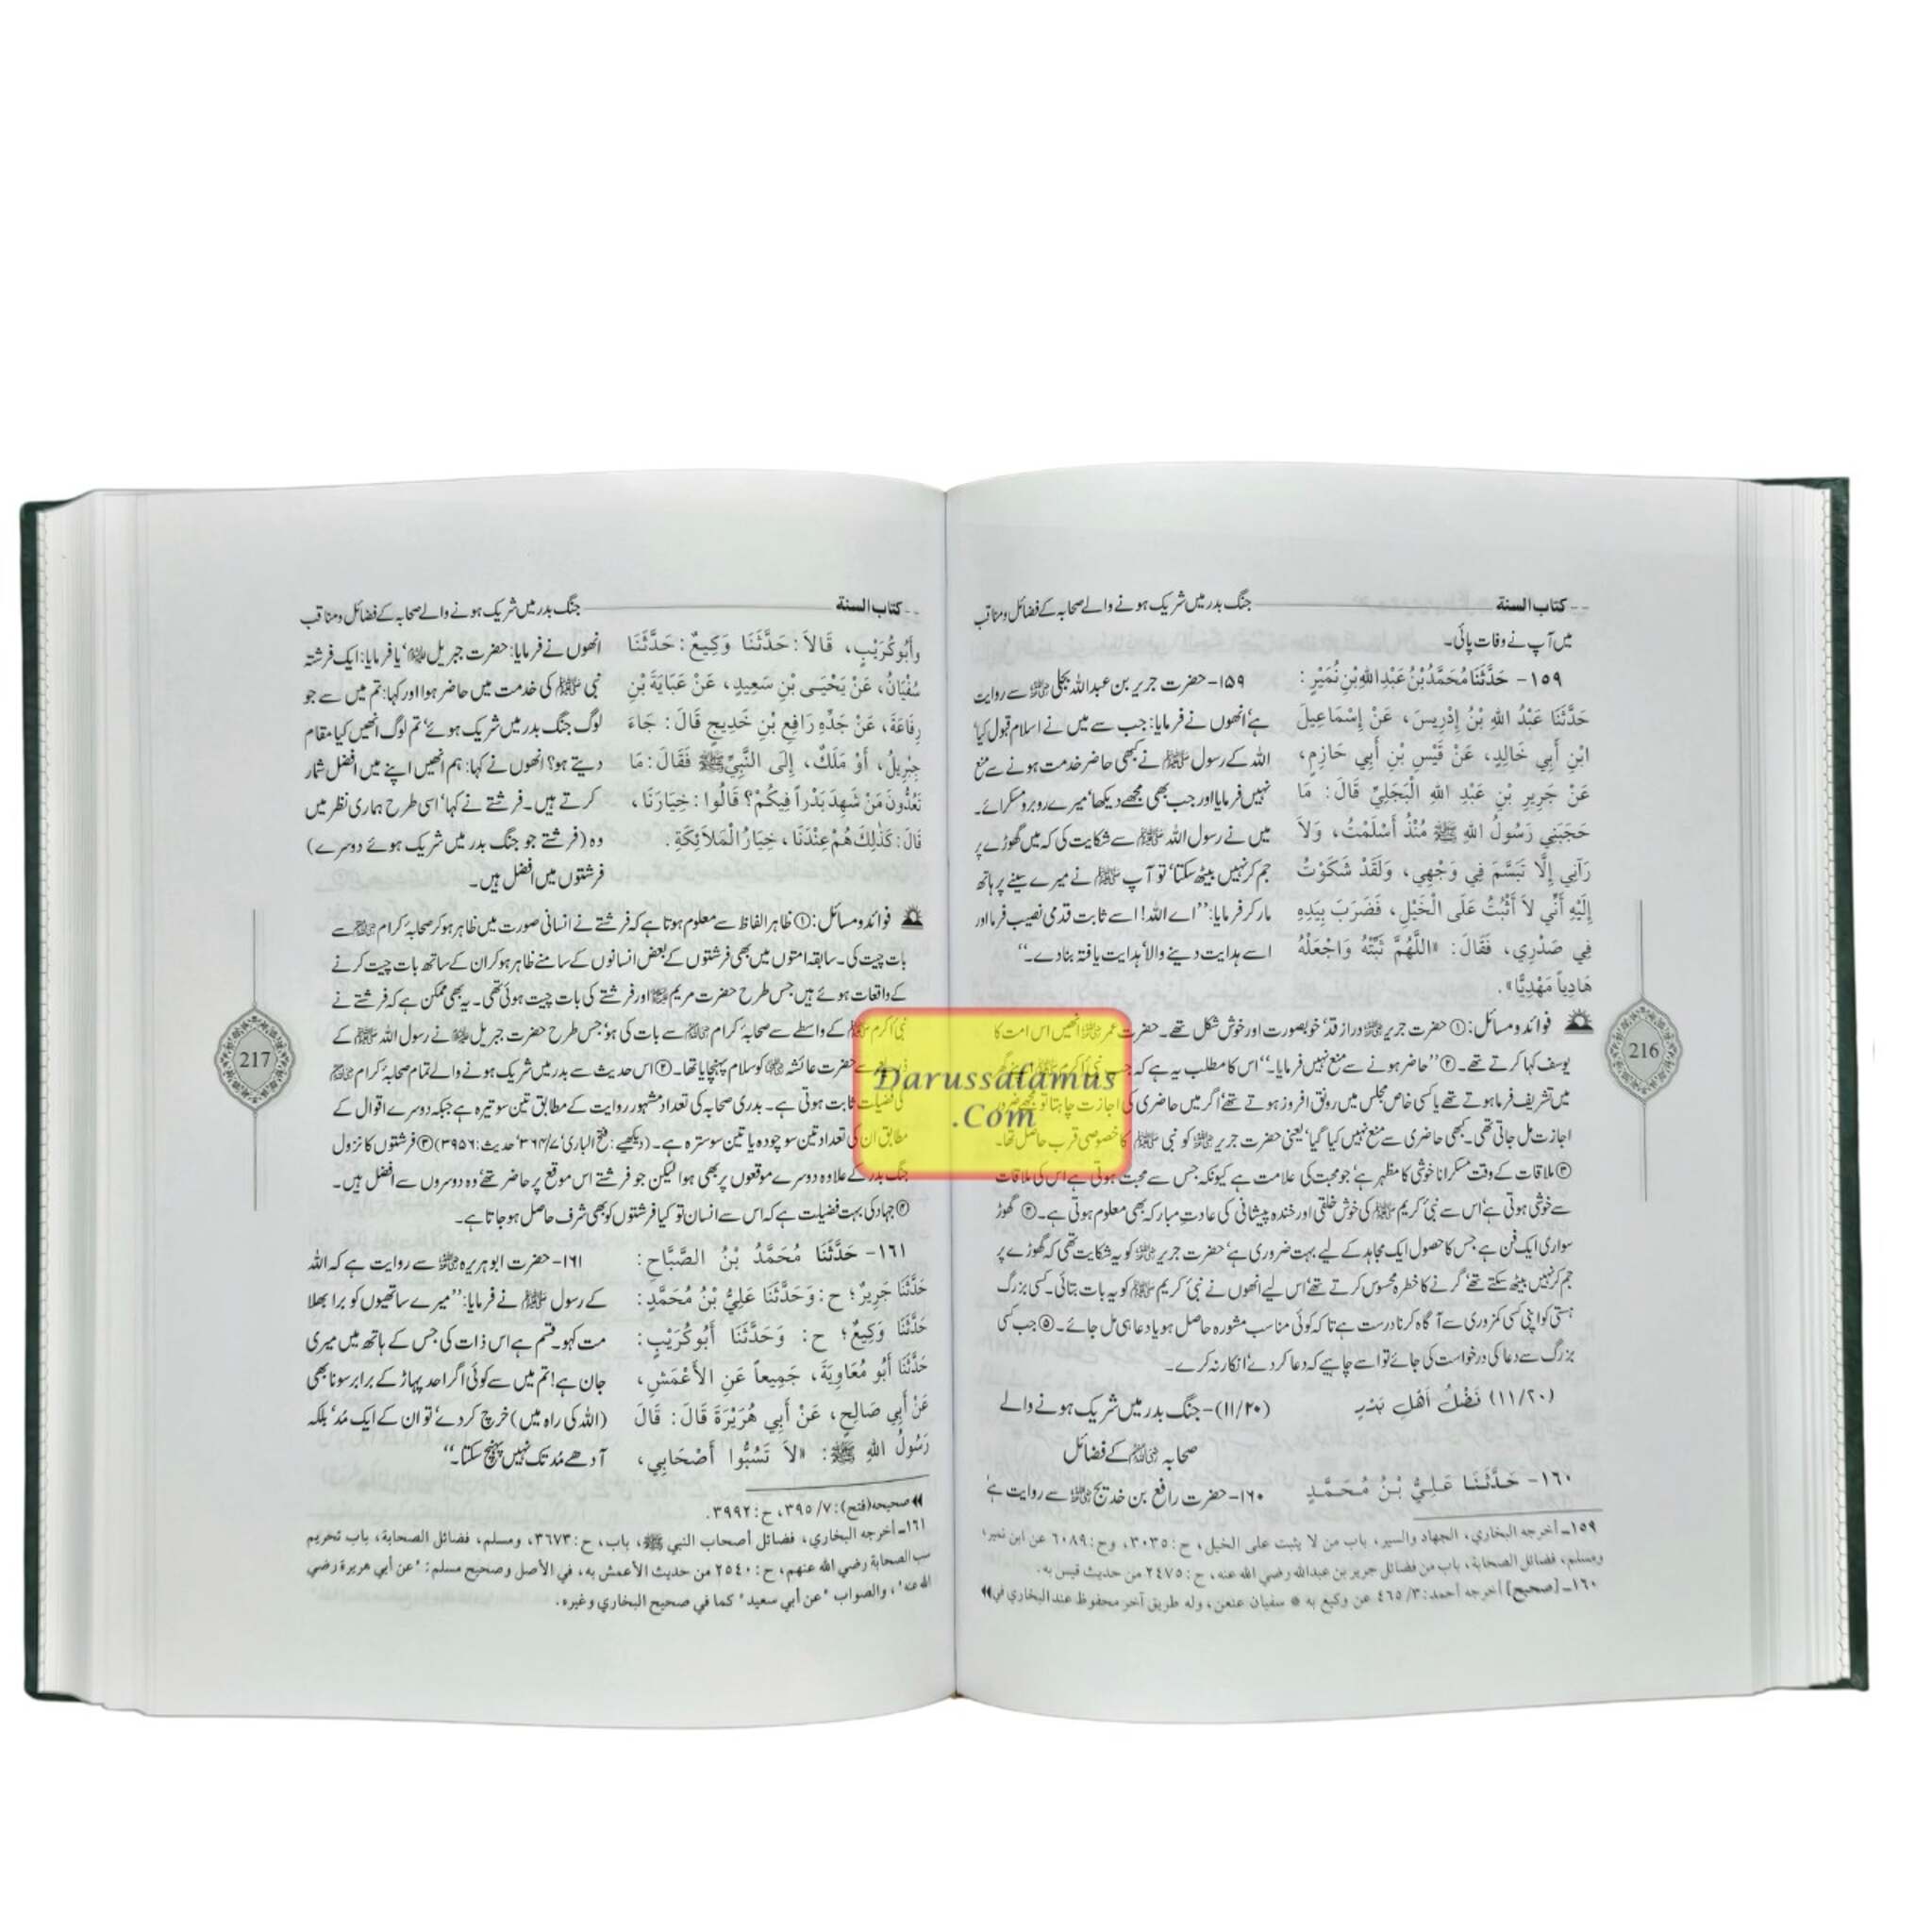 کتاب السنۃ
جنگ بدر میں شریک ہونے والے صحابہ کے فضائل و مناقب
میں آپ نے وفات پائی۔
١٥٩- حَدَّثَنَا مُحَمَّدُ بْنُ عَبْدِ اللهِ بْنِ نُمَيْرٍ:
حَدَّثَنَا عَبْدُ اللهِ بْنُ إِدْرِيسَ، عَنْ إِسْمَاعِيلَ
ابْنِ أَبِي خَالِدٍ، عَنْ قَيْسِ بْنِ أَبِي حَازِمٍ،
عَنْ جَرِيرِ بْنِ عَبْدِ اللهِ الْبَجَلِيِّ قَالَ: مَا
حَجَبَنِي رَسُولُ اللهِ ﷺ مُنْذُ أَسْلَمْتُ، وَلاَ
رَآنِي إِلَّا تَبَسَّمَ فِي وَجْهِي، وَلَقَدْ شَكَوْتُ
إِلَيْهِ أَنِّي لاَ أَثْبُتُ عَلَى الْخَيْلِ، فَضَرَبَ بِيَدِهِ
فِي صَدْرِي، فَقَالَ: «اللَّهُمَّ ثَبِّتْهُ وَاجْعَلْهُ
هَادِياً مَهْدِيًّا».
۱۵۹- حضرت جریر بن عبداللہ بجلی رضی اللہ عنہ سے روایت
ہے، انھوں نے فرمایا: جب سے میں نے اسلام قبول کیا،
اللہ کے رسول ﷺ نے کبھی حاضر خدمت ہونے سے منع
نہیں فرمایا اور جب بھی مجھے دیکھا، میرے روبرو مسکرائے۔
میں نے رسول اللہ ﷺ سے شکایت کی کہ میں گھوڑے پر
جم کر نہیں بیٹھ سکتا، تو آپ ﷺ نے میرے سینے پر ہاتھ
مار کر فرمایا: ”اے اللہ! اسے ثابت قدمی نصیب فرما اور
اسے ہدایت دینے والا، ہدایت یافتہ بنا دے۔“
فوائد و مسائل: ① حضرت جریر رضی اللہ عنہ دراز قد، خوبصورت اور خوش شکل تھے۔ حضرت عمر رضی اللہ عنہ انھیں اس امت کا
یوسف کہا کرتے تھے۔ ② ”حاضر ہونے سے منع نہیں فرمایا۔“ اس کا مطلب یہ ہے کہ جب نبی اکرم ﷺ
میں تشریف فرما ہوتے تھے یا کسی خاص مجلس میں رونق افروز ہوتے تھے، اگر میں حاضری کی اجازت چاہتا تو مجھے ضرور
اجازت مل جاتی تھی۔ کبھی حاضری سے منع نہیں کیا گیا، یعنی حضرت جریر رضی اللہ عنہ کو نبی ﷺ کا خصوصی قرب حاصل تھا۔
③ ملاقات کے وقت مسکرانا خوشی کا مظہر ہے، جو محبت کی علامت ہے کیونکہ جس سے محبت ہوتی ہے اس کی ملاقات
سے خوشی ہوتی ہے، اس سے نبی کریم ﷺ کی خوش خلقی اور خندہ پیشانی کی عادتِ مبارکہ بھی معلوم ہوتی ہے۔ ④ گھوڑ
سواری ایک فن ہے جس کا حصول ایک مجاہد کے لیے بہت ضروری ہے، حضرت جریر رضی اللہ عنہ کو یہ شکایت تھی کہ گھوڑے پر
جم کر نہیں بیٹھ سکتے تھے، گرنے کا خطرہ محسوس کرتے تھے، اس لیے انھوں نے نبی کریم ﷺ کو یہ بات بتائی۔ کسی بزرگ
ہستی کو اپنی کسی کمزوری سے آگاہ کرنا درست ہے تاکہ کوئی مناسب مشورہ حاصل ہو یا دعا ہی مل جائے۔ ⑤ جب کسی
بزرگ سے دعا کی درخواست کی جائے تو اسے چاہیے کہ دعا کر دے، انکار نہ کرے۔
(١١/٢٠) فَضْلُ أَهْلِ بَدْرٍ
(۱۱/۲۰)- جنگ بدر میں شریک ہونے والے
صحابہ رضی اللہ عنہم کے فضائل
١٦٠- حَدَّثَنَا عَلِيُّ بْنُ مُحَمَّدٍ
۱۶۰- حضرت رافع بن خدیج رضی اللہ عنہ سے روایت ہے،
١٥٩- أخرجه البخاري، الجهاد والسير، باب من لا يثبت على الخيل، ح:٣٠٣٥، وح:٦٠٨٩ عن ابن نمير،
ومسلم، فضائل الصحابة، باب من فضائل جرير بن عبدالله رضي الله عنه، ح:٢٤٧٥ من حديث قيس به.
١٦٠- [صحيح] أخرجه أحمد:٣/٤٦٥ عن وكيع به * سفيان عنعن، وله طريق آخر محفوظ عند البخاري في
216
کتاب السنۃ
جنگ بدر میں شریک ہونے والے صحابہ کے فضائل و مناقب
وَأَبُو كُرَيْبٍ، قَالاَ: حَدَّثَنَا وَكِيعٌ: حَدَّثَنَا
سُفْيَانُ، عَنْ يَحْيَى بْنِ سَعِيدٍ، عَنْ عَبَايَةَ بْنِ
رِفَاعَةَ، عَنْ جَدِّهِ رَافِعِ بْنِ خَدِيجٍ قَالَ: جَاءَ
جِبْرِيلُ، أَوْ مَلَكٌ، إِلَى النَّبِيِّ ﷺ فَقَالَ: مَا
تَعُدُّونَ مَنْ شَهِدَ بَدْراً فِيكُمْ؟ قَالُوا: خِيَارَنَا،
قَالَ: كَذَلِكَ هُمْ عِنْدَنَا، خِيَارُ الْمَلاَئِكَةِ.
انھوں نے فرمایا: حضرت جبریل علیہ السلام، یا فرمایا: ایک فرشتہ
نبی ﷺ کی خدمت میں حاضر ہوا اور کہا: تم میں سے جو
لوگ جنگ بدر میں شریک ہوئے، تم لوگ انھیں کیا مقام
دیتے ہو؟ انھوں نے کہا: ہم انھیں اپنے میں افضل شمار
کرتے ہیں۔ فرشتے نے کہا، اسی طرح ہماری نظر میں
وہ (فرشتے جو جنگ بدر میں شریک ہوئے دوسرے)
فرشتوں میں افضل ہیں۔
فوائد و مسائل: ① ظاہر الفاظ سے معلوم ہوتا ہے کہ فرشتے نے انسانی صورت میں ظاہر ہو کر صحابہ کرام رضی اللہ عنہم سے
بات چیت کی۔ سابقہ امتوں میں بھی فرشتوں کے بعض انسانوں کے سامنے ظاہر ہو کر ان کے ساتھ بات چیت کرنے
کے واقعات ہوئے ہیں جس طرح حضرت مریم علیہا السلام اور فرشتے کی بات چیت ہوئی تھی۔ یہ بھی ممکن ہے کہ فرشتے نے
نبی اکرم ﷺ کے واسطے سے صحابہ کرام رضی اللہ عنہم سے بات کی ہو، جس طرح حضرت جبریل علیہ السلام نے رسول اللہ ﷺ کے
ذریعے سے حضرت عائشہ رضی اللہ عنہا کو سلام پہنچایا تھا۔ ② اس حدیث سے بدر میں شریک ہونے والے تمام صحابہ کرام رضی اللہ عنہم
کی فضیلت ثابت ہوتی ہے۔ بدری صحابہ کی تعداد مشہور روایت کے مطابق تین سو تیرہ ہے جبکہ دوسرے اقوال کے
مطابق ان کی تعداد تین سو چودہ یا تین سو سترہ ہے۔ (دیکھیے: فتح الباری: ۷/۳۶۴، حدیث: ۳۹۵۶) ③ فرشتوں کا نزول
جنگ بدر کے علاوہ دوسرے موقعوں پر بھی ہوا لیکن جو فرشتے اس موقع پر حاضر تھے، وہ دوسروں سے افضل ہیں۔
④ جہاد کی بہت فضیلت ہے کہ اس سے انسان تو کیا فرشتوں کو بھی شرف حاصل ہو جاتا ہے۔
١٦١- حَدَّثَنَا مُحَمَّدُ بْنُ الصَّبَّاحِ:
حَدَّثَنَا جَرِيرٌ؛ ح: وَحَدَّثَنَا عَلِيُّ بْنُ مُحَمَّدٍ:
حَدَّثَنَا وَكِيعٌ؛ ح: وَحَدَّثَنَا أَبُو كُرَيْبٍ:
حَدَّثَنَا أَبُو مُعَاوِيَةَ، جَمِيعاً عَنِ الأَعْمَشِ،
عَنْ أَبِي صَالِحٍ، عَنْ أَبِي هُرَيْرَةَ قَالَ: قَالَ
رَسُولُ اللهِ ﷺ: «لاَ تَسُبُّوا أَصْحَابِي،
۱۶۱- حضرت ابوہریرہ رضی اللہ عنہ سے روایت ہے کہ اللہ
کے رسول ﷺ نے فرمایا: ”میرے ساتھیوں کو برا بھلا
مت کہو۔ قسم ہے اس ذات کی جس کے ہاتھ میں میری
جان ہے! تم میں سے کوئی اگر احد پہاڑ کے برابر سونا بھی
(اللہ کی راہ میں) خرچ کر دے، تو ان کے ایک مُد، بلکہ
آدھے مُد تک نہیں پہنچ سکتا۔“
صحيحه (فتح):٧/٣٩٥، ح:٣٩٩٢.
١٦١- أخرجه البخاري، فضائل أصحاب النبي ﷺ، باب، ح:٣٦٧٣، ومسلم، فضائل الصحابة، باب تحريم
سب الصحابة رضي الله عنهم، ح:٢٥٤٠ من حديث الأعمش به، في الأصل وصحيح مسلم: "عن أبي هريرة رضي
الله عنه"، والصواب "عن أبي سعيد" كما في صحيح البخاري وغيره.
217
Darussalamus
.Com